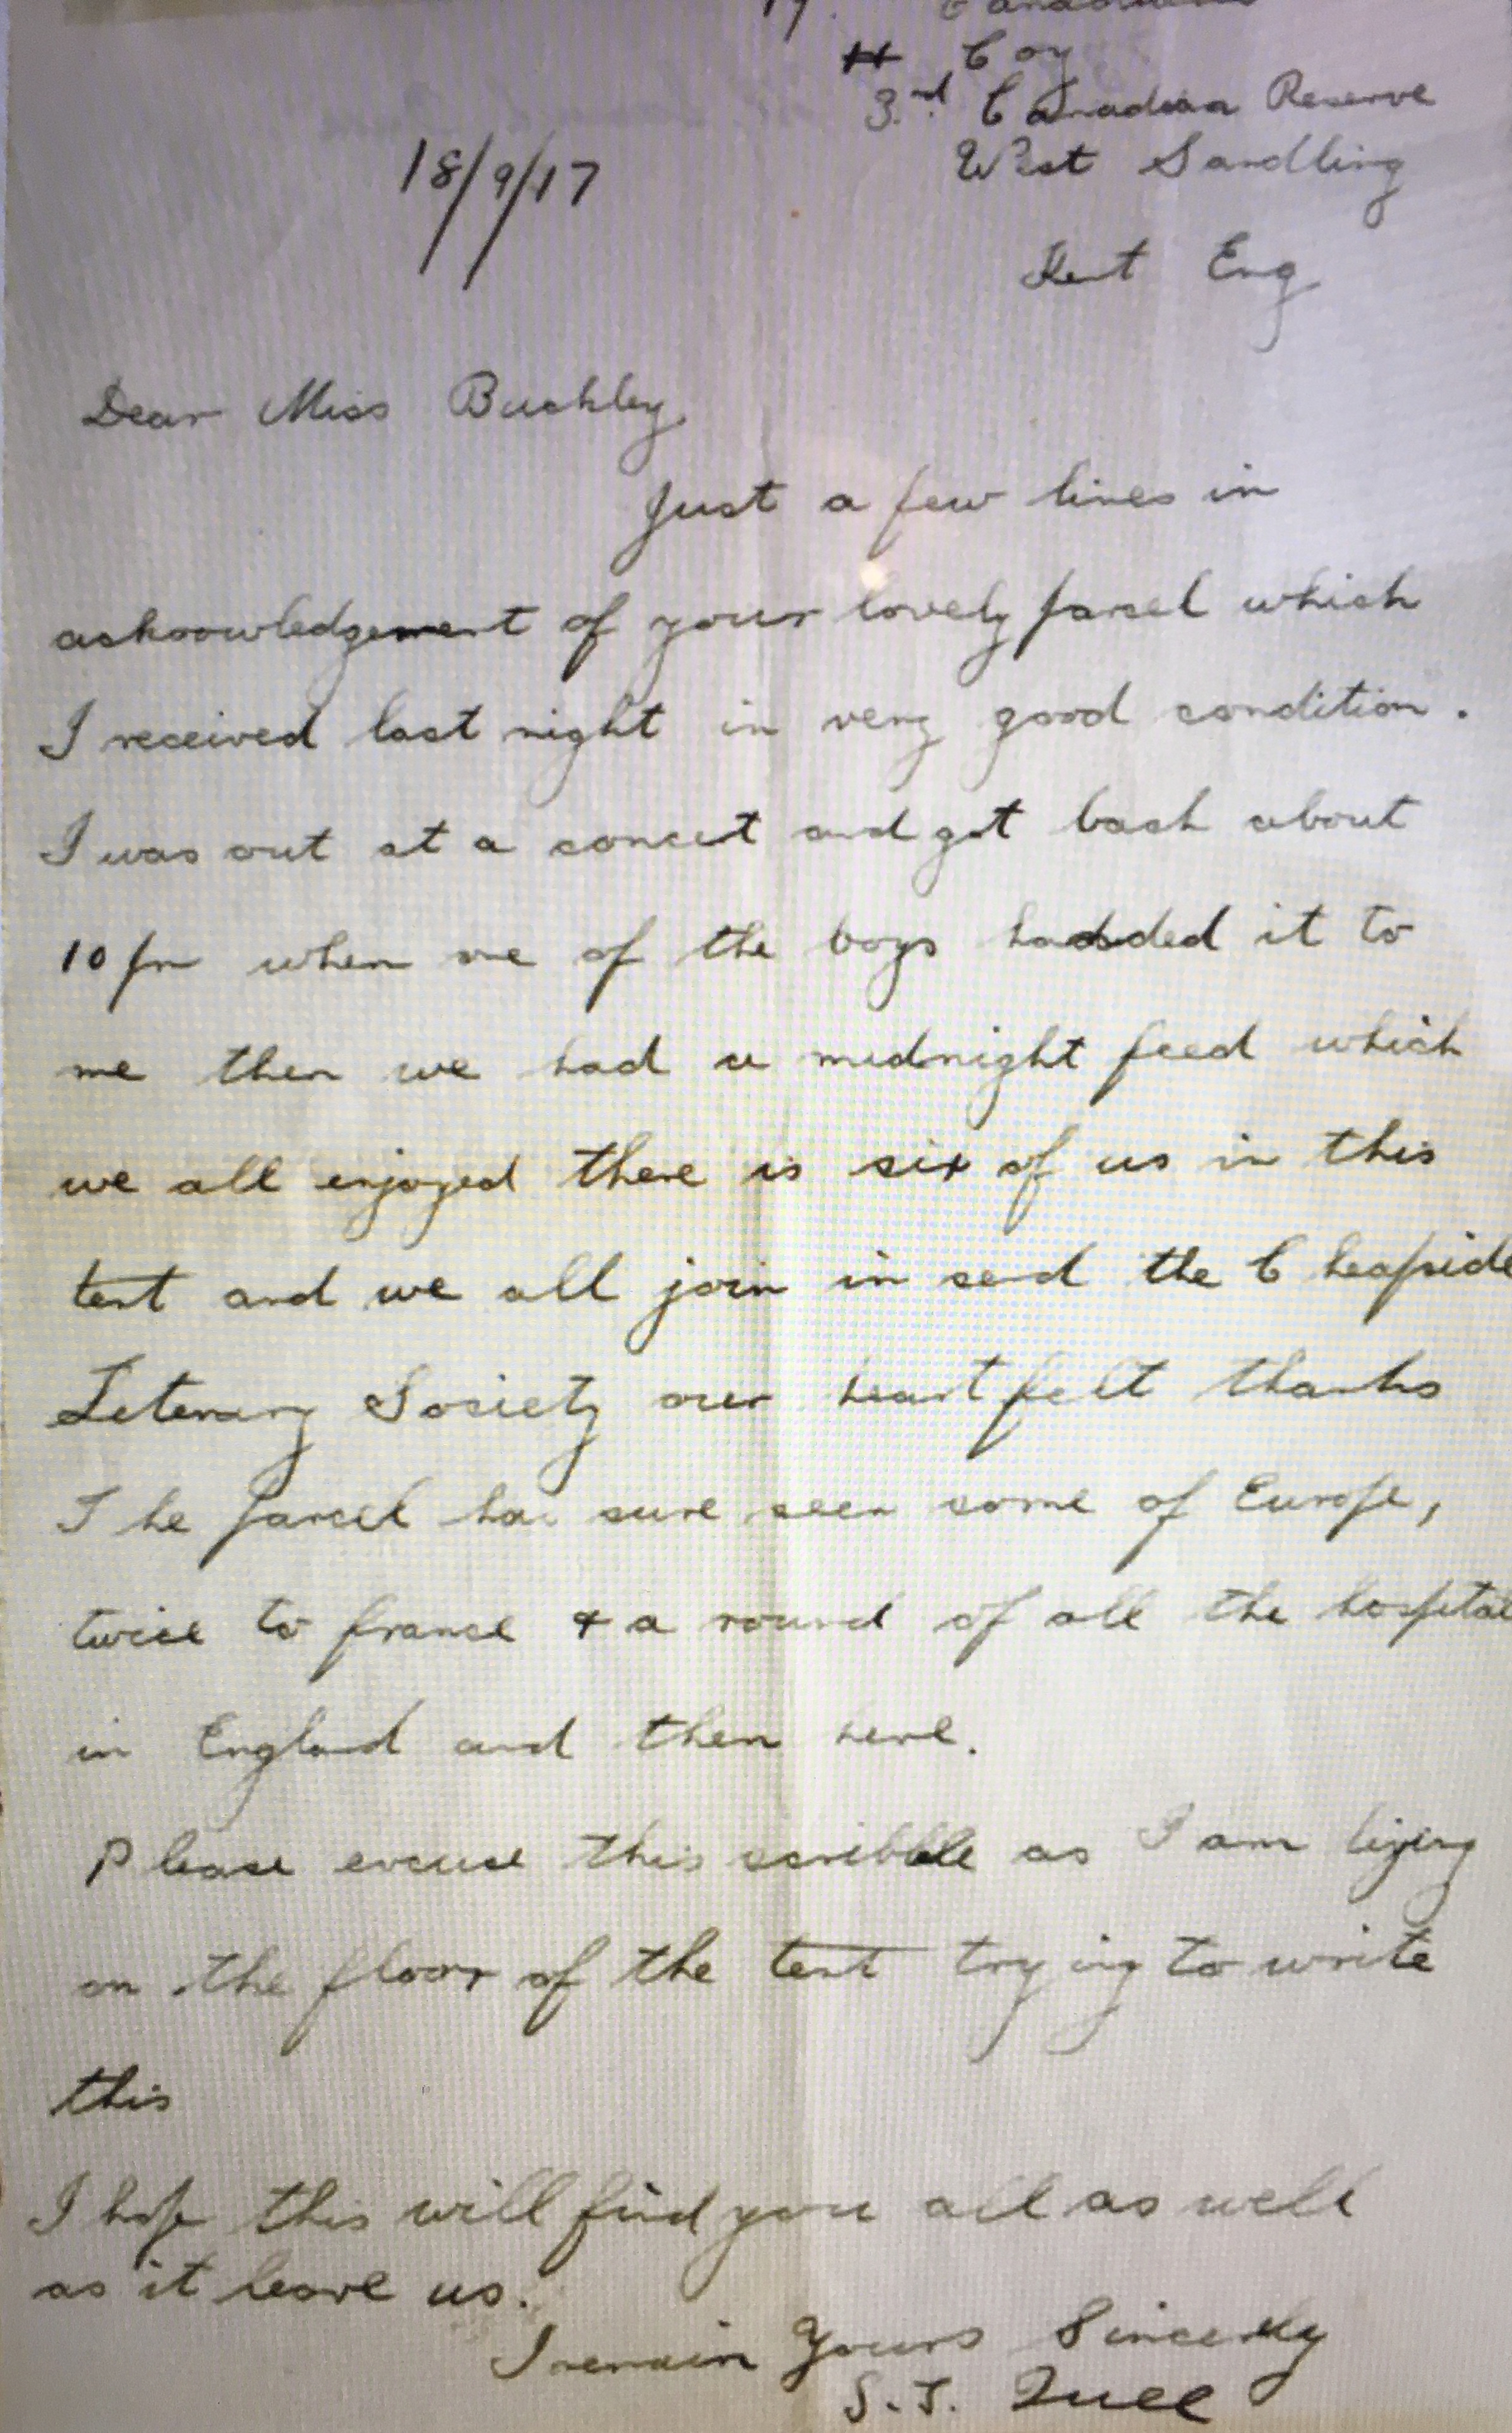 Coy
3rd Canadian Reserve
West Sandling
18/9/17
Kent Eng
Dear Miss Buckley
Just a few lines in
acknowledgement of your lovely parcel which
I received last night in very good condition.
I was out at a concert and got back about
10 pm when one of the boys handed it to
me then we had a midnight feed which
we all enjoyed there is six of us in this
tent and we all join in send the Cheapside
Leterary Society our heart felt thanks
The parcel has sure seen some of Europe,
twice to france & a round of all the hospital
in England and then here.
Please excuse this scribble as I am lying
on the floor of the tent trying to write
this
I hope this will find you all as well
as it leave us.
I remain Yours Sincerely
S.J.